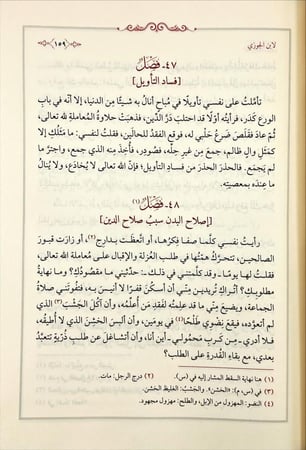 لابن الجوزي
(١٥٩)
٤٧- فَصْلٌ
[فساد التأويل]
تأملتُ على نفسي تأويلًا في مُباحٍ أنالُ به شيئًا من الدنيا، إلا أنّه في باب
الورع كَدَر، فرأيته أولًا قد احتلبَ دَرَّ الدِّين، فذهبَتْ حلاوةُ المعاملة لله تعالى،
ثُمّ عادَ فقلَّصَ ضرعُ حَلْبي له، فوقع الفقدُ للحالَين، فقلتُ لنفسي: ما مَثَلُكِ إلا
كمَثَلِ والٍ ظالمٍ، جمع مِن غيرِ حِلِّه، فصُودِر، فأُخِذ منه الذي جمع، وأُلزِمَ ما
لم يَجمَع. فالحذرَ الحذرَ من فساد التأويل؛ فإنّ الله تعالى لا يُخادَع، ولا يُنالُ
ما عنده بمعصيته.
٤٨- فَصْلٌ(١)
[إصلاح البدن سببُ صلاح الدين]
رأيتُ نفسي كلَّما صفا فِكرُها، أو اتّعظَت بدارِجٍ(٢)، أو زارَتْ قبورَ
الصالحين، تتحرّكُ همّتُها في طلب العُزلة والإقبال على مُعاملة الله تعالى.
فقلتُ لها يومًا ـ وقد كلَّمتني في ذلك ـ: حدّثيني ما مقصُودُكِ؟ وما نهايةُ
مطلوبكِ؟ أتُراكِ تُريدين منّي أن أسكُنَ قفرًا لا أنيسَ به، فتفوتَني صلاةُ
الجماعة، ويضيعَ منّي ما قد علِمتُه لفقدِ مَن أُعلِّمُه، وأن آكلَ الجَشِبَ(٣) الذي
لم أتعوّدْه، فيقع نِضْوي طَلْحًا(٤) في يومَين، وأن ألبسَ الخشِنَ الذي لا أُطيقُه،
فلا أدري ـ مِن كَربِ محمولي ـ أين أنا، وأن أتشاغلَ عن طلب ذُرّيّةٍ تتعبَّدُ
بعدي، مع بقاءِ القُدرة على الطلب؟
(١) هنا نهاية السقط المشار إليه في (س).
(٢) درج الرجل: مات.
(٣) في (س، م): «الخشن». والجَشِبُ: الغليظ الخشن.
(٤) النضو: المهزول من الإبل، والطلح: مهزول مجهود.